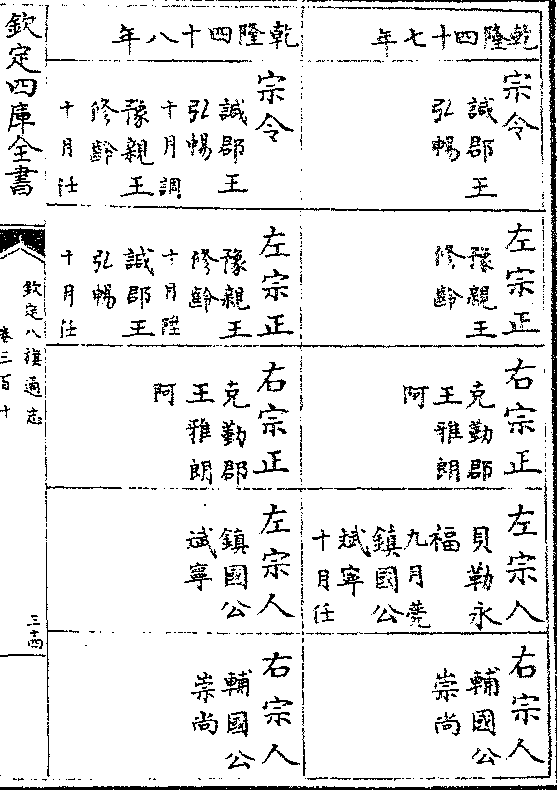 乾隆四十七年
宗令
誠郡王
弘暢
左宗正
豫親王
修齡
右宗正
克勤郡
王雅朗
阿
左宗人
貝勒永
福
九月薨
鎮國公
斌寧
十月任
右宗人
輔國公
崇尚
乾隆四十八年
宗令
誠郡王
弘暢
十月調
豫親王
修齡
十月任
左宗正
豫親王
修齡
十月陞
誠郡王
弘暢
十月任
右宗正
克勤郡
王雅朗
阿
左宗人
鎮國公
斌寧
右宗人
輔國公
崇尚
欽定四庫全書
欽定八旗通志
卷三百十
三十四